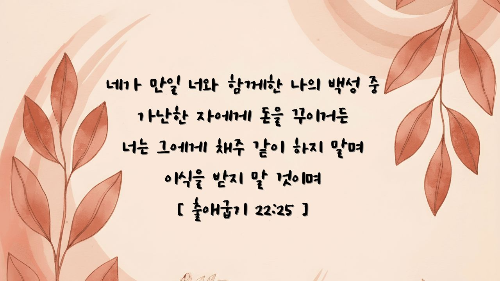 네가 만일 너와 함께한 나의 백성 중
가난한 자에게 돈을 꾸이거든
너는 그에게 채주 같이 하지 말며
이식을 받지 말 것이며
[ 출애굽기 22:25 ]